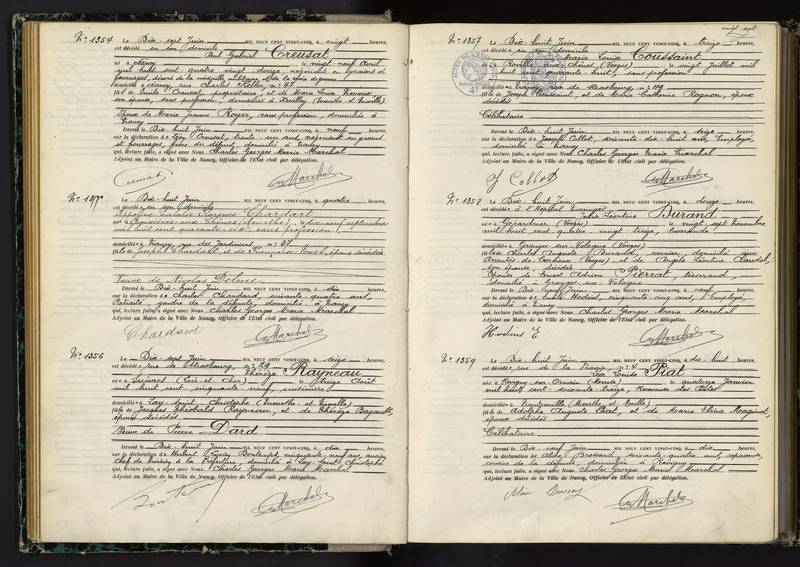 N° 1354 Le Dix-sept Juin MIL NEUF CENT VINGT-CINQ, à vingt heures,
est décédé en son domicile
Paul Gabriel Creusat
né à Nancy le vingt neuf Avril
mil huit cent quatre vingt douze, négociant en grains et
fourrages, décoré de la médaille militaire
domicilié à Nancy, rue Charles Keller n° 47
fils de Emile Creusat, propriétaire, et de Marie Louise
son épouse, sans profession, domiciliés à (Meurthe et Moselle)
Epoux de Marie Jeanne Royer, sans profession, domiciliée à
Nancy
Dressé le Dix-huit Juin MIL NEUF CENT VINGT-CINQ, à neuf heures,
sur la déclaration de Creusat, trente un ans, négociant en grains
et fourrages, du défunt, domicilié à Nancy
qui, lecture faite, a signé avec Nous Charles Georges Marie Marchal
Adjoint au Maire de la Ville de Nancy, Officier de l'Etat civil par délégation.
Creusat
N° Le Dix-huit Juin MIL NEUF CENT VINGT-CINQ, à quatre heures,
est décédée en son domicile
Eulalie Florence Chardart
née à (Meurthe), le dix-neuf septembre
mil huit cent quarante-six, sans profession,
domiciliée à Nancy, rue des Jardiniers n° 37
fille de Joseph Chardart et de Françoise époux décédés
Veuve de Nicolas
Dressé le Dix-huit Juin MIL NEUF CENT VINGT-CINQ, à dix heures,
sur la déclaration de Charles Chardard, soixante-quatre ans,
Retraité, gendre de la défunte, domicilié à Nancy
qui, lecture faite, a signé avec Nous Charles Georges Marie Marchal
Adjoint au Maire de la Ville de Nancy, Officier de l'Etat civil par délégation.
Chardard
N° 1356 Le Dix-sept Juin MIL NEUF CENT VINGT-CINQ, à seize heures,
est décédée rue de Strasbourg, n°
Thérèse Rayneau
née à (Loir et Cher) le treize Août
mil huit cent cinquante neuf,
domiciliée à Lay-Saint-Christophe (Meurthe et Moselle)
fille de Jacques Théobald Rayneau, et de Thérèse Bagault,
époux décédés
Veuve de Pierre Dard
Dressé le Dix-huit Juin MIL NEUF CENT VINGT-CINQ, à dix heures,
sur la déclaration de Hubert Lucien cinquante neuf ans, ancien
Chef de Division à la Préfecture, domicilié à Lay Saint Christophe
qui, lecture faite, a signé avec Nous Charles Georges Marie Marchal
Adjoint au Maire de la Ville de Nancy, Officier de l'Etat civil par délégation.
vingt sept
N° 1357 Le Dix-huit Juin MIL NEUF CENT VINGT-CINQ, à treize heures,
est décédée en son domicile
Marie Louise Toussaint
née à (Vosges) le vingt Juillet mil
huit cent quarante-huit, sans profession
domiciliée à Nancy, rue de Strasbourg n° 119
fille de Joseph Toussaint, et de Marie Catherine Rognon, époux
décédés
Célibataire
Dressé le Dix-huit Juin MIL NEUF CENT VINGT-CINQ, à seize heures,
sur la déclaration de Joseph Collot, soixante-dix huit ans, Employé,
domicilié à Nancy
qui, lecture faite, a signé avec Nous Charles Georges Marie Marchal
Adjoint au Maire de la Ville de Nancy, Officier de l'Etat civil par délégation.
J Collot
N° 1358 Le Dix-huit Juin MIL NEUF CENT VINGT-CINQ, à douze heures,
est décédée à l'Hôpital
Julia Léontine Durand
née à Gérardmer (Vosges) le vingt sept Novembre
mil huit cent quatre-vingt treize, tisserande
domiciliée à Granges-sur-Vologne (Vosges)
fille de Charles Auguste Durand, domicilié aux
(Vosges) et de Angèle Léontine
son épouse, décédée
Epouse de Ernest Adrien Pierrat, tisserand,
domicilié à Granges-sur-Vologne
Dressé le Dix-neuf Juin MIL NEUF CENT VINGT-CINQ, à neuf heures,
sur la déclaration de Emile Hodins, cinquante cinq ans, Employé,
domicilié à Nancy
qui, lecture faite, a signé avec Nous Charles Georges Marie Marchal
Adjoint au Maire de la Ville de Nancy, Officier de l'Etat civil par délégation.
Hodins E
N° 1359 Le Dix-huit Juin MIL NEUF CENT VINGT-CINQ, à dix huit heures,
est décédée rue de la Prairie n° 4
Louise Piat
née à Revigny-sur-Ornain (Meuse) le quatorze Janvier
mil huit cent soixante-treize,
domiciliée à (Meurthe et Moselle)
fille de Adolphe Auguste Piat, et de Marie
époux décédés
Célibataire
Dressé le Dix-neuf Juin MIL NEUF CENT VINGT-CINQ, à dix heures,
sur la déclaration de soixante-quatre ans,
de la défunte, domiciliée à Revigny
qui, lecture faite, a signé avec Nous Charles Georges Marie Marchal
Adjoint au Maire de la Ville de Nancy, Officier de l'Etat civil par délégation.